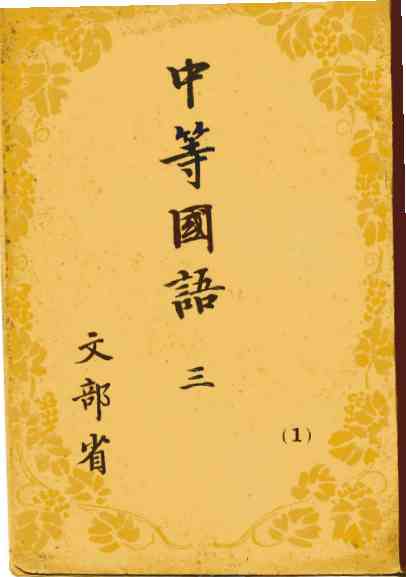 中等國語 三
(1)
文部省